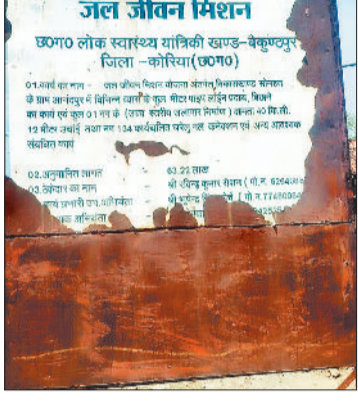 जल जीवन मिशन
छ0ग0 लोक स्वास्थ्य यांत्रिकी खण्ड-बैकुण्ठपुर
जिला -कोरिया(छ0ग0)
01.कार्य का नाम - जल जीवन मिशन योजना अंतर्गत विकासखण्ड सोनहत
के ग्राम आनंदपुर में विभिन्न व्यास के कुल मीटर पाइप लाईन प्रदाय, बिछाने
का कार्य एवं कुल 01 नग के (उच्च स्तरीय जलागार निर्माण ) क्षमता 40 कि.ली.
12 मीटर उंचाई तथा नग 134 कार्यचलित घरेलु नल कनेक्शन एवं अन्य आवश्यक
संबंधित कार्य
02.अनुमानित लागत - 63.22 लाख
03.ठेकेदार का नाम - श्री रविन्द्र कुमार रौशन ( मो.न.
प्रभारी उप.अभियंता श्री ( मो.न.
अभियंता